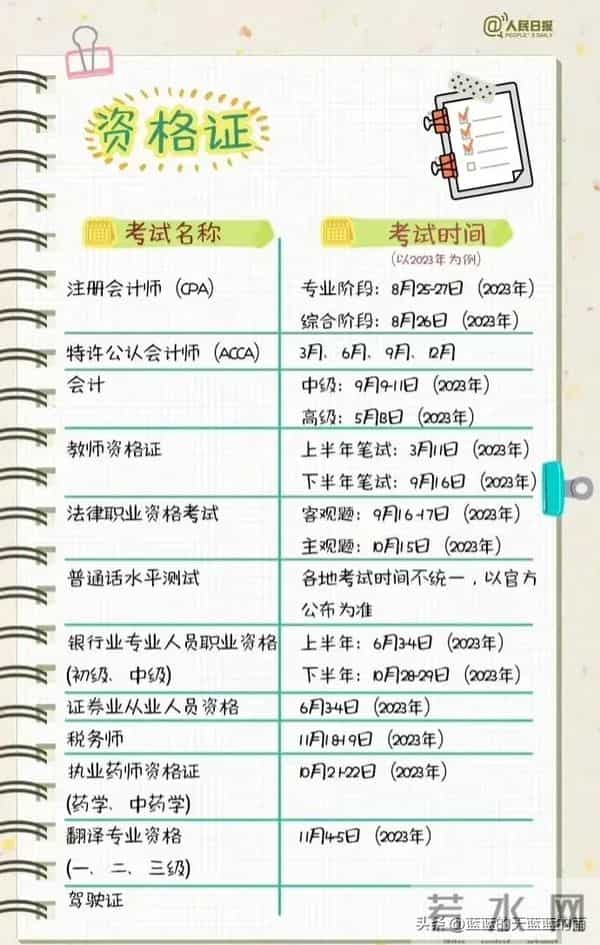 @人民日报
PEOPLE'S DAILY
资格证
考试名称
考试时间
(以2023年为例)
注册会计师（CPA）
专业阶段：8月25-27日（2023年）
综合阶段：8月26日（2023年）
特许公认会计师（ACCA）
3月、6月、9月、12月
会计
中级：9月9-11日（2023年）
高级：5月13日（2023年）
教师资格证
上半年笔试：3月11日（2023年）
下半年笔试：9月16日（2023年）
法律职业资格考试
客观题：9月16-17日（2023年）
主观题：10月15日（2023年）
普通话水平测试
各地考试时间不统一，以官方
公布为准
银行业专业人员职业资格
(初级、中级)
上半年：6月3-4日（2023年）
下半年：10月28-29日（2023年）
证券业从业人员资格
6月3-4日（2023年）
税务师
11月18-19日（2023年）
执业药师资格证
(药学、中药学)
10月21-22日（2023年）
翻译专业资格
(一、二、三级)
11月4-5日（2023年）
驾驶证
若水网
头条@蓝蓝的天蓝蓝的雨